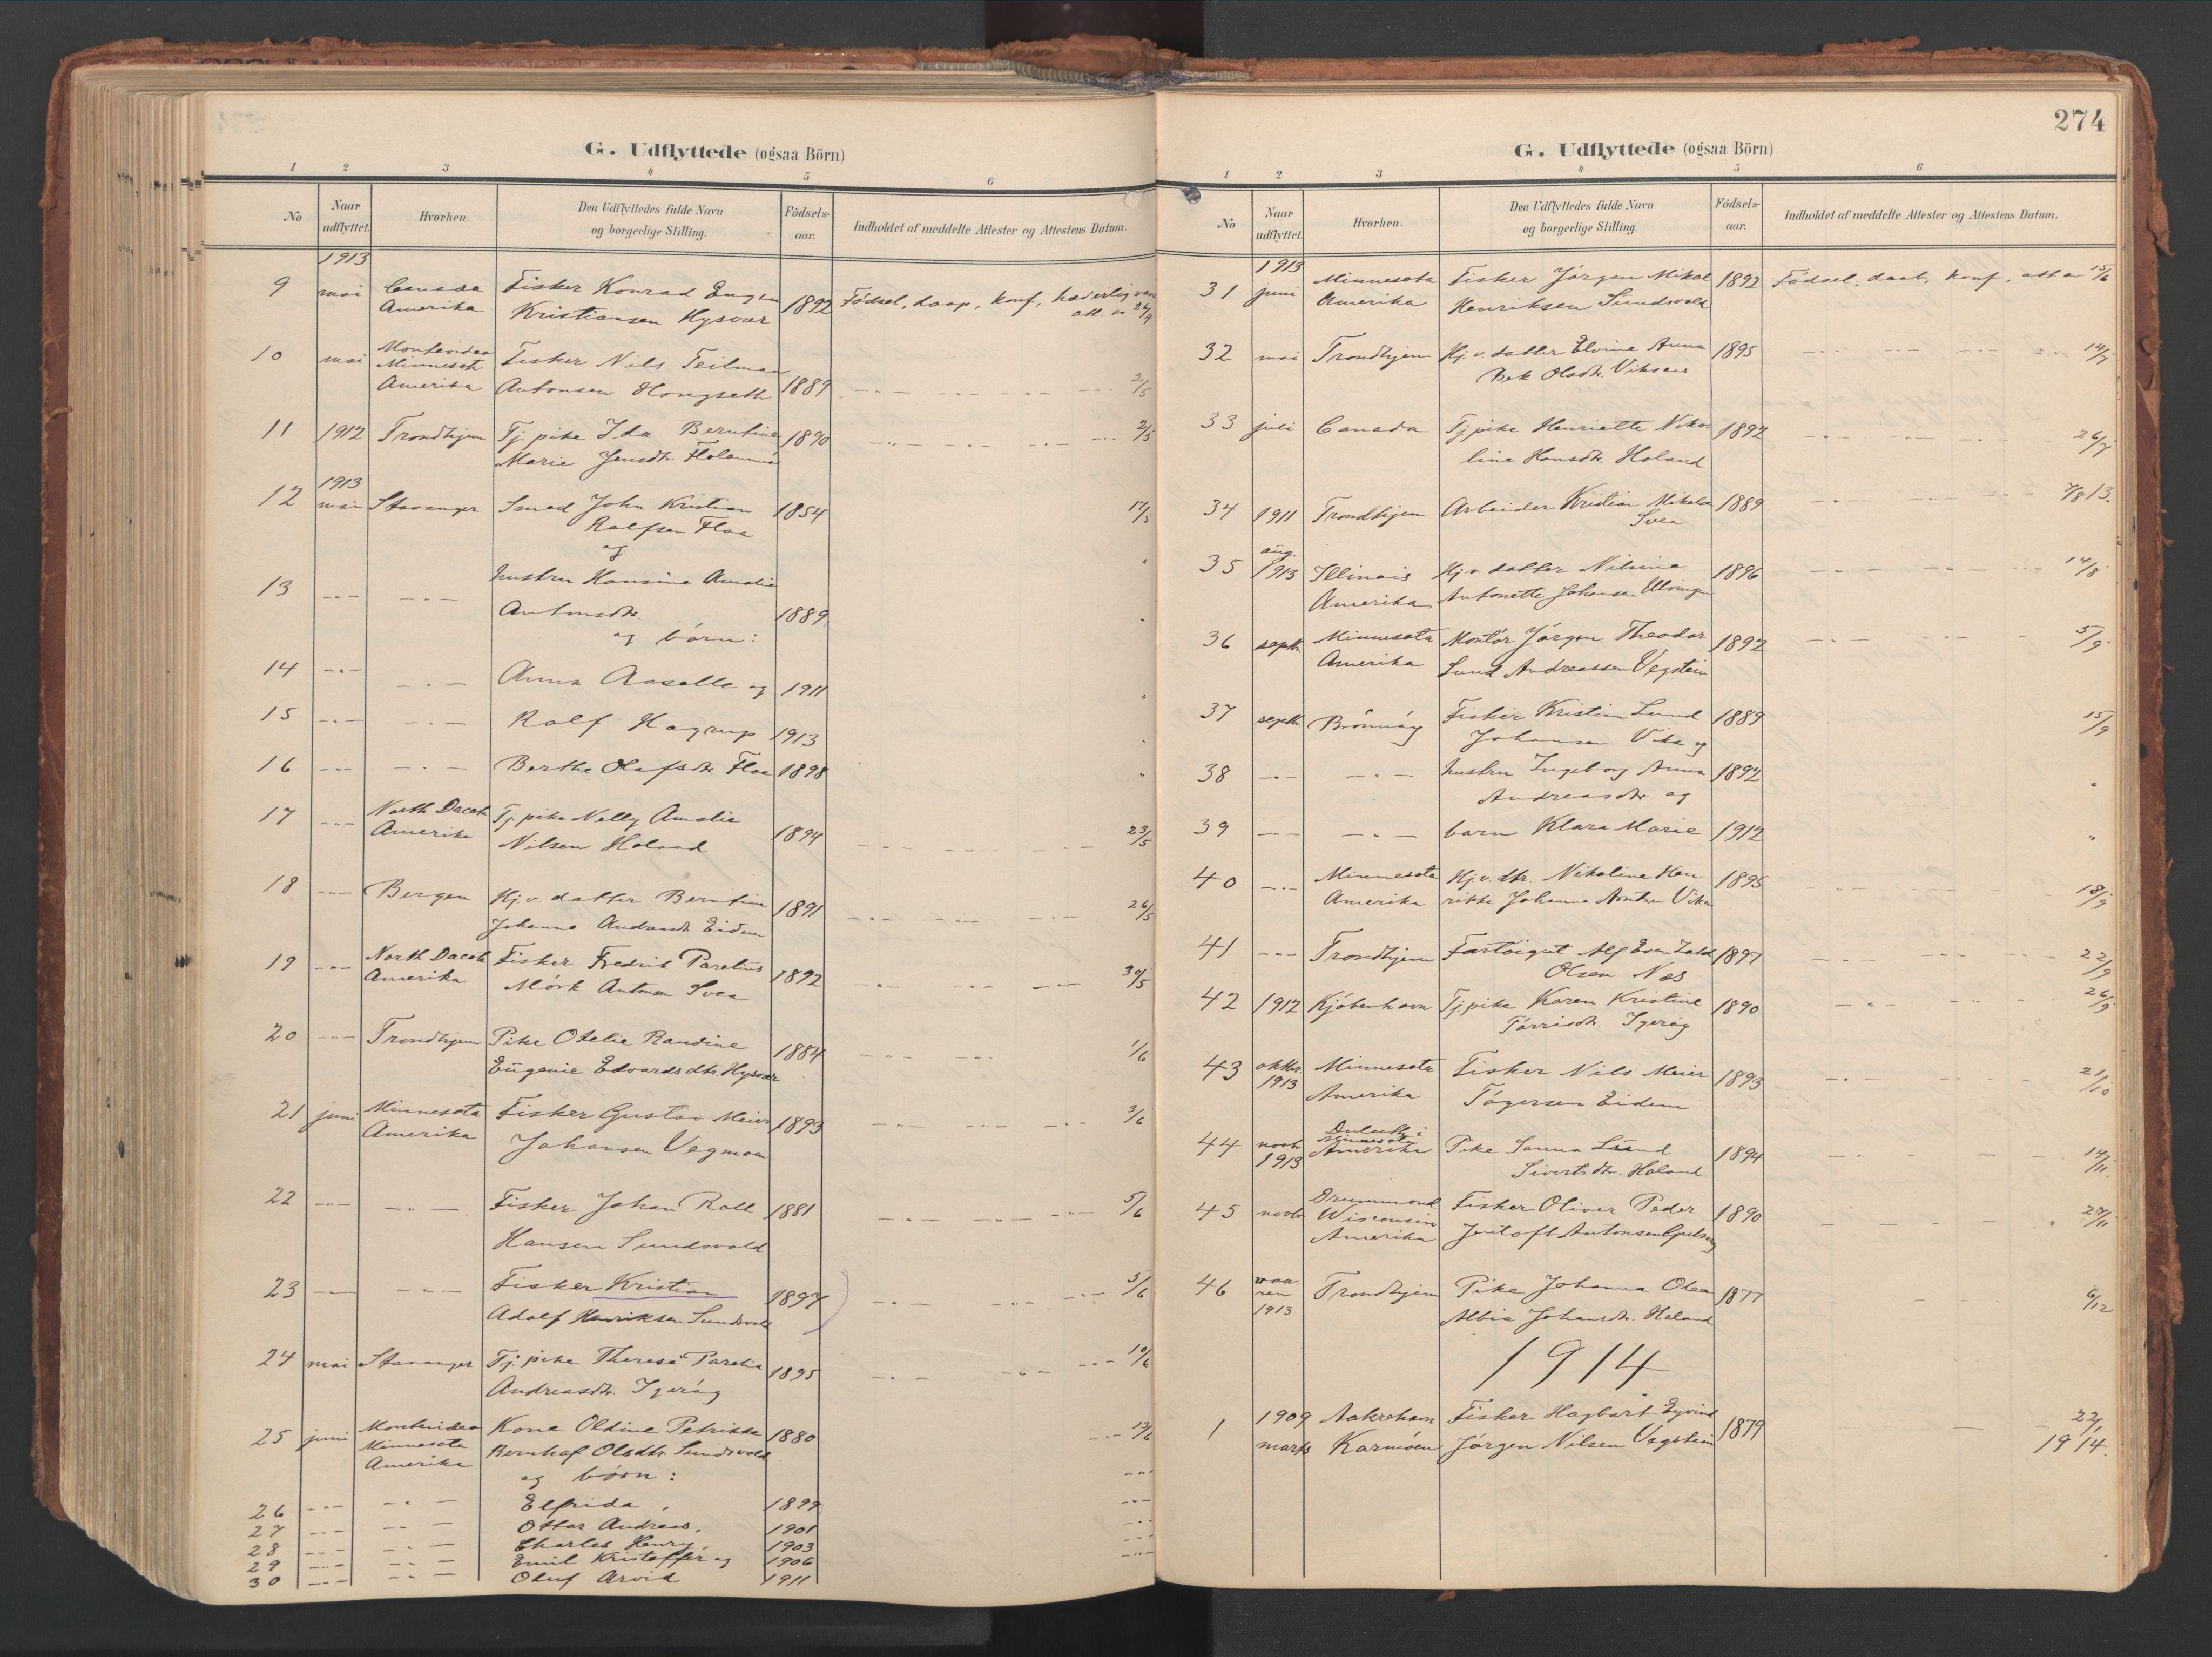 G. Udflyttede (ogsaa Börn)
1 2 3 4 5 6
No
Naar udflyttet.
Hvorhen.
Den Udflyttedes fulde Navn og borgerlige Stilling.
Födsels-aar.
Indholdet af meddelte Attester og Attestens Datum.
1913
9 mai Canada Fisker Konrad Eugen 1892 Födsel, daap, konf, hæderlig
Amerika Kristiansen Hysvær att. 26/4
10 mai Montevideo Fisker Nils Teilman
Minnesota
Amerika Antonsen Hongseth 1889 2/5
11 1912 Trondhjem Tj. pike Ida Berntine 1890 2/5
Marie Jensdtr.
1913
12 mai Stavanger Smed John Kristian 1854 17/5
Rolfsen Floa
og
13 hustru Hansine Amalie
Antonsdtr. 1889
og börn:
14 Anna Aaselle og 1911
15 Rolf Hagrup 1913
16 Berthe Olafsdtr. Floa 1898
17 North Dacota Tj. pike Nelly Amalie
Amerika Nilsen Holand 1894 23/5
18 Bergen Hj. v. datter Berntine 1891 26/5
Johanna Andreasdtr. Eidem
19 North Dacota Fisker Fredrik Paretius 1892 30/5
Amerika Mörk Antonsen Svea
20 Trondhjem Pike Otelie Randine 1884 1/6
Eugenie Edvardsdtr. Hysvær
21 juni Minnesota Fisker Gustav Meier 1893 3/6
Amerika Johansen Vegmoen
22 Fisker Johan Roll 1881 5/6
Hansen Sundsvold
23 Fisker Kristian 1897 5/6
Adolf Henriksen Sundsvold
24 mai Stavanger Tj. pike Therese Paretia 1895 10/6
Andreasdtr. Igeröy
25 juni Montevideo Kone Oldine Petrikke 1880 12/6
Minnesota Bernhof Olsdtr. Sundsvold
Amerika og börn:
26 Elfrida, 1899
27 Ottar Andreas, 1901
28 Charles Henry, 1903
29 Emil Kristoffer og 1906
30 Oluf Arvid 1911
274
G. Udflyttede (ogsaa Börn)
1 2 3 4 5 6
No
Naar udflyttet.
Hvorhen.
Den Udflyttedes fulde Navn og borgerlige Stilling.
Födsels-aar.
Indholdet af meddelte Attester og Attestens Datum.
1913
31 juni Minnesota Fisker Jörgen Mikal 1892 Födsel, daab, konf, att av 15/6
Amerika Henriksen Sundsvold
32 mai Trondhjem Hj. v. datter Elvine Anna 1895 14/7
Bek Olsdtr. Viksaas
33 juli Canada Tj pike Henriette Niko 1892 26/7
line Hansdtr. Holand
34 1911 Trondhjem Arbeider Kristian Mikalsen 1889 7/8 13.
Svea
aug.
35 1913 Illinois Hj. v. datter Nilsine 1896 14/8
Amerika Antonette Johansen Ulvingen
36 septr. Minnesota Montör Jörgen Theodor 1892 5/9
Amerika Lund Andreassen Vegstein
37 septr. Brönnöy Fisker Kristian Lund 1889 15/9
Johansen Vika og
38 hustru Ingeborg Anna 1892
Andreasdtr. og
39 barn Klara Marie 1912
40 Minnesota Hj. v. dtr. Nikoline Hen 1895 18/9
Amerika rikke Johanna Arntsen Vika
41 Trondhjem Fartöigut Alf 1897 22/9
Olsen Næs
42 1912 Kjöbenhavn Tj. pike Karen Kristine 1890 26/9
Törrisdtr. Igeröy
43 oktbr. Minnesota Fisker Nils Meier 1893 21/10
1913 Amerika Tögersen Eidem
44 novbr Duluth i
Minnesota
1913 Amerika Pike Sanna Lund 1894 14/11.
Sivertsdtr. Holand
45 novbr Drummond Fisker Oliver Peder 1890 27/11
Wisconsin
Amerika Jentoft Antonsen
46 vaa-
ren Trondhjem Pike Johanna Olea 1877 6/12
1913 Albia Johansdtr. Holand
1914
1 1909 Aakrehavn Fisker Hagbart Eyvind 1879 22/1
marts Karmöen Jörgen Nilsen Vegstein 1914.